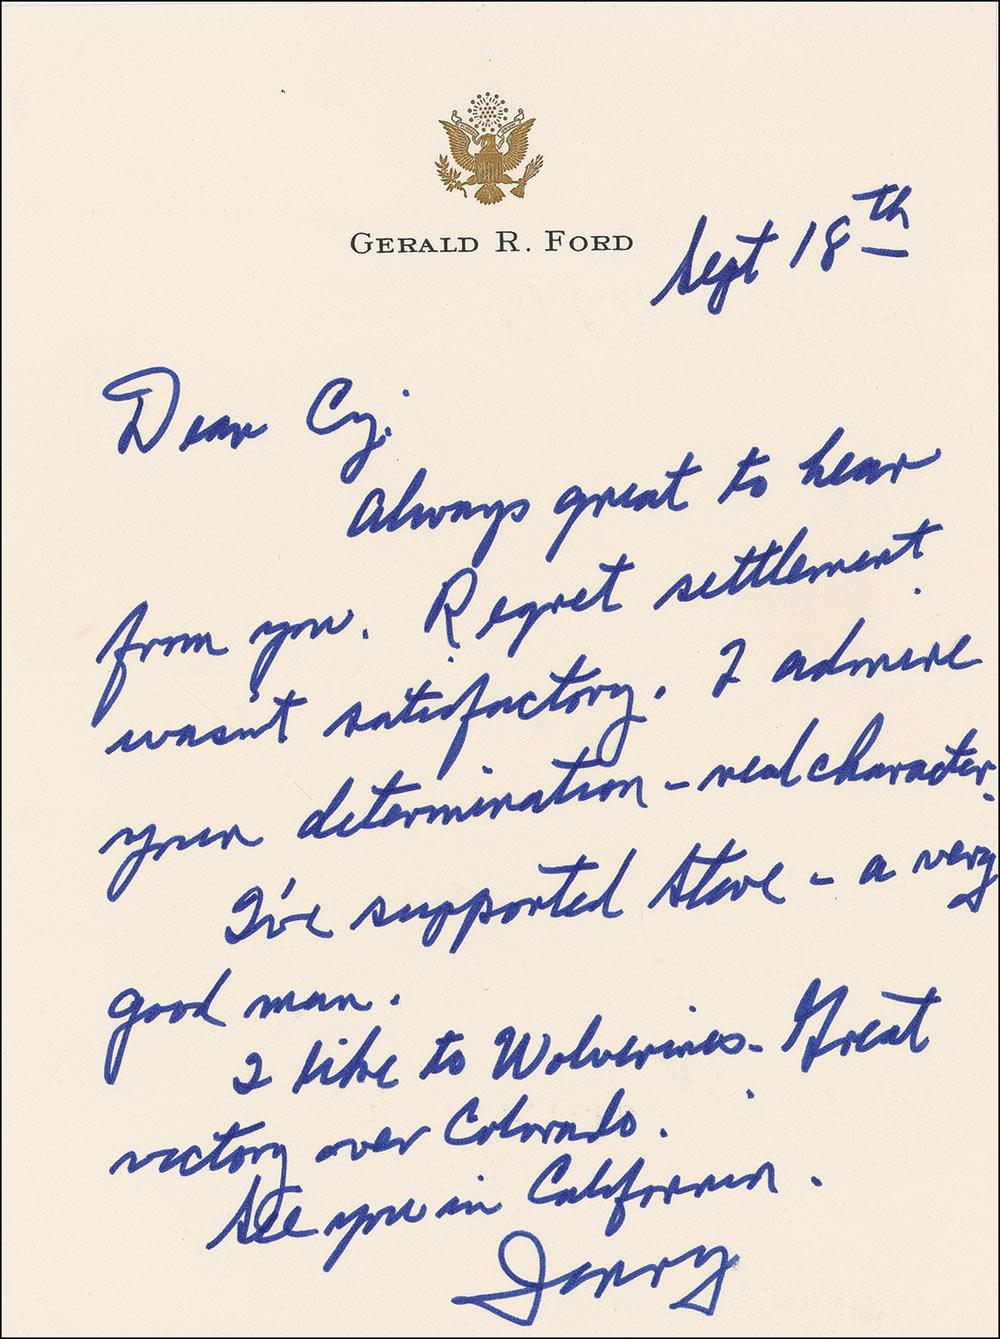 GERALD R. FORD
Sept 18th
Dear Cy:
Always great to hear
from you. Regret settlement
wasn't satisfactory. I admire
your determination - real character.
I've supported Steve - a very
good man.
I like to Wolverines - Great
victory over Colorado.
See you in California.
Jerry